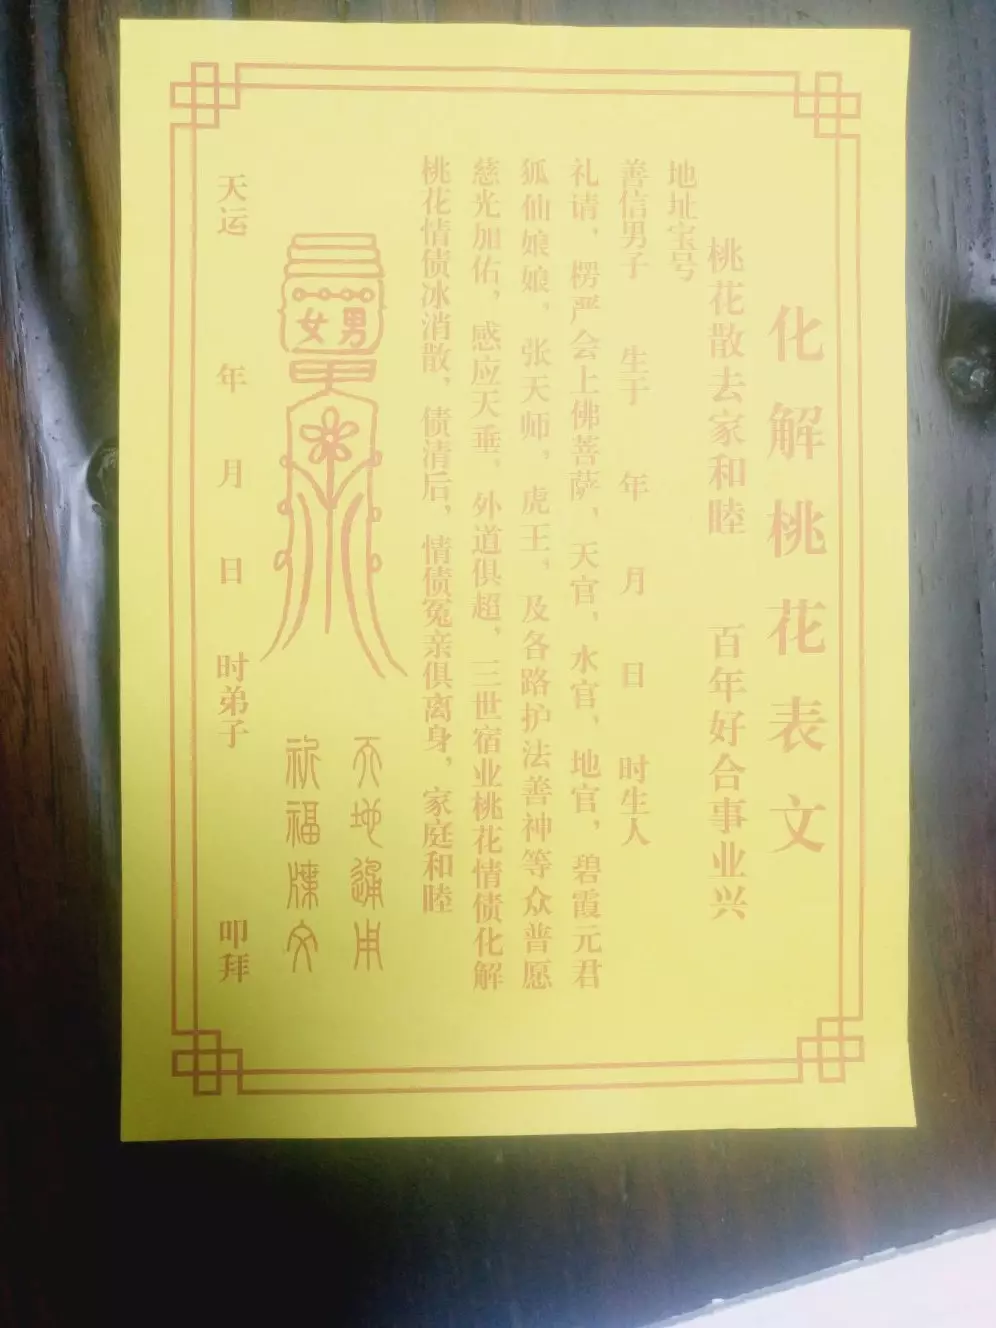 化解桃花表文
桃花散去家和睦 百年好合事业兴
地址宝号
善信男子 生于 年 月 日 时生人
礼请，楞严会上佛菩萨，天官，水官、地官，碧霞元君
狐仙娘娘，张天师，虎王，及各路护法善神等众普愿
慈光加佑，感应天垂，外道俱超，三世宿业桃花情债化解
桃花情债冰消散，债清后，情债冤亲俱离身，家庭和睦
女男
天地通用
祈福牒文
天运 年 月 日 时弟子 叩拜